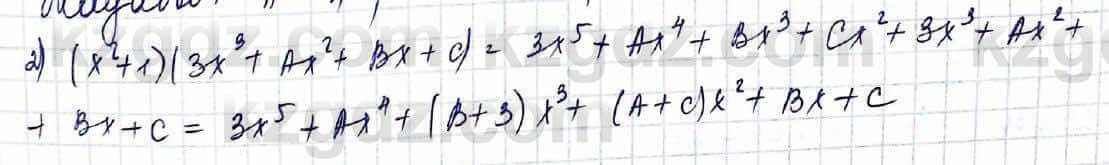 2) (x²+1)(3x³+Ax²+Bx+C)= 3x⁵+Ax⁴+Bx³+Cx²+3x³+Ax²+
+ Bx+C = 3x⁵+Ax⁴+(B+3)x³+(A+C)x²+Bx+C